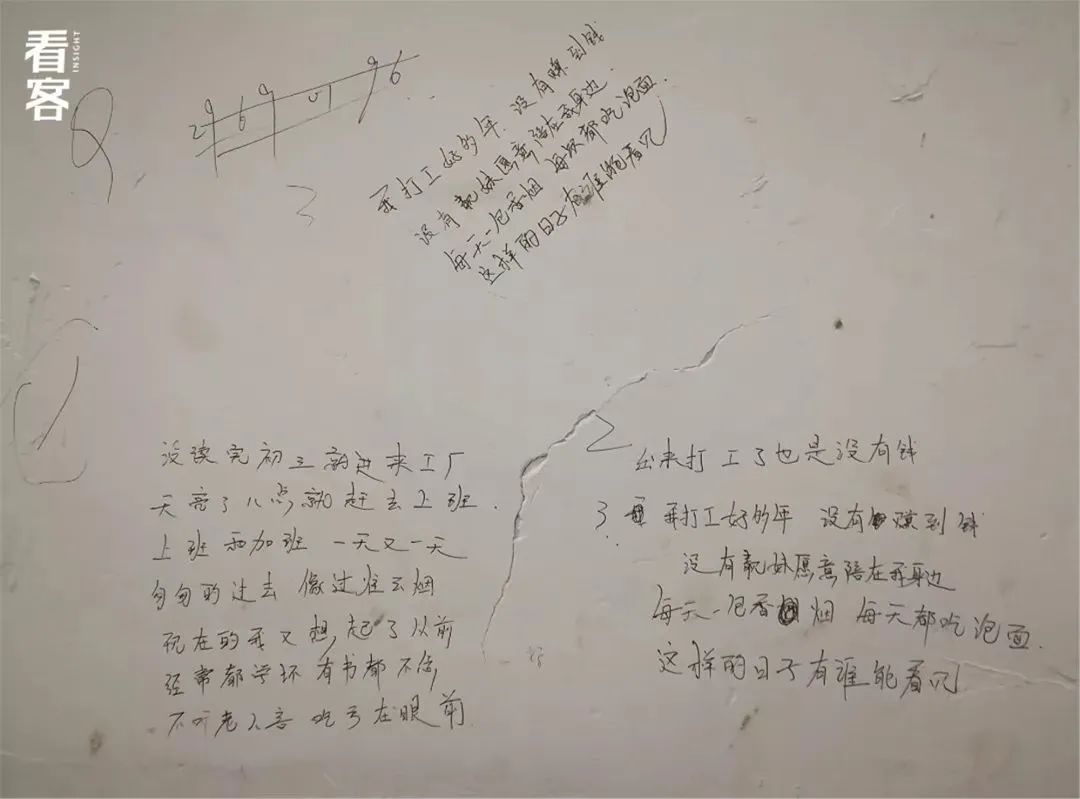 看客
INSIGHT
2969 51 96
我打工好多年 没有赚到钱
没有靓妹愿意陪在我身边
每天一包香烟 每次都吃泡面
这样的日子有谁能看见
没读完初三就进来工厂
天亮了八点就赶去上班.
上班和加班 一天又一天
匆匆的过去 像过往云烟
现在的我又想起了从前
经常都学坏有书都不念
不听老人言 吃亏在眼前
2 出来打工了也是没有钱
3 我打工好多年 没有赚到钱
没有靓妹愿意陪在我身边
每天一包香烟 每天都吃泡面.
这样的日子有谁能看见